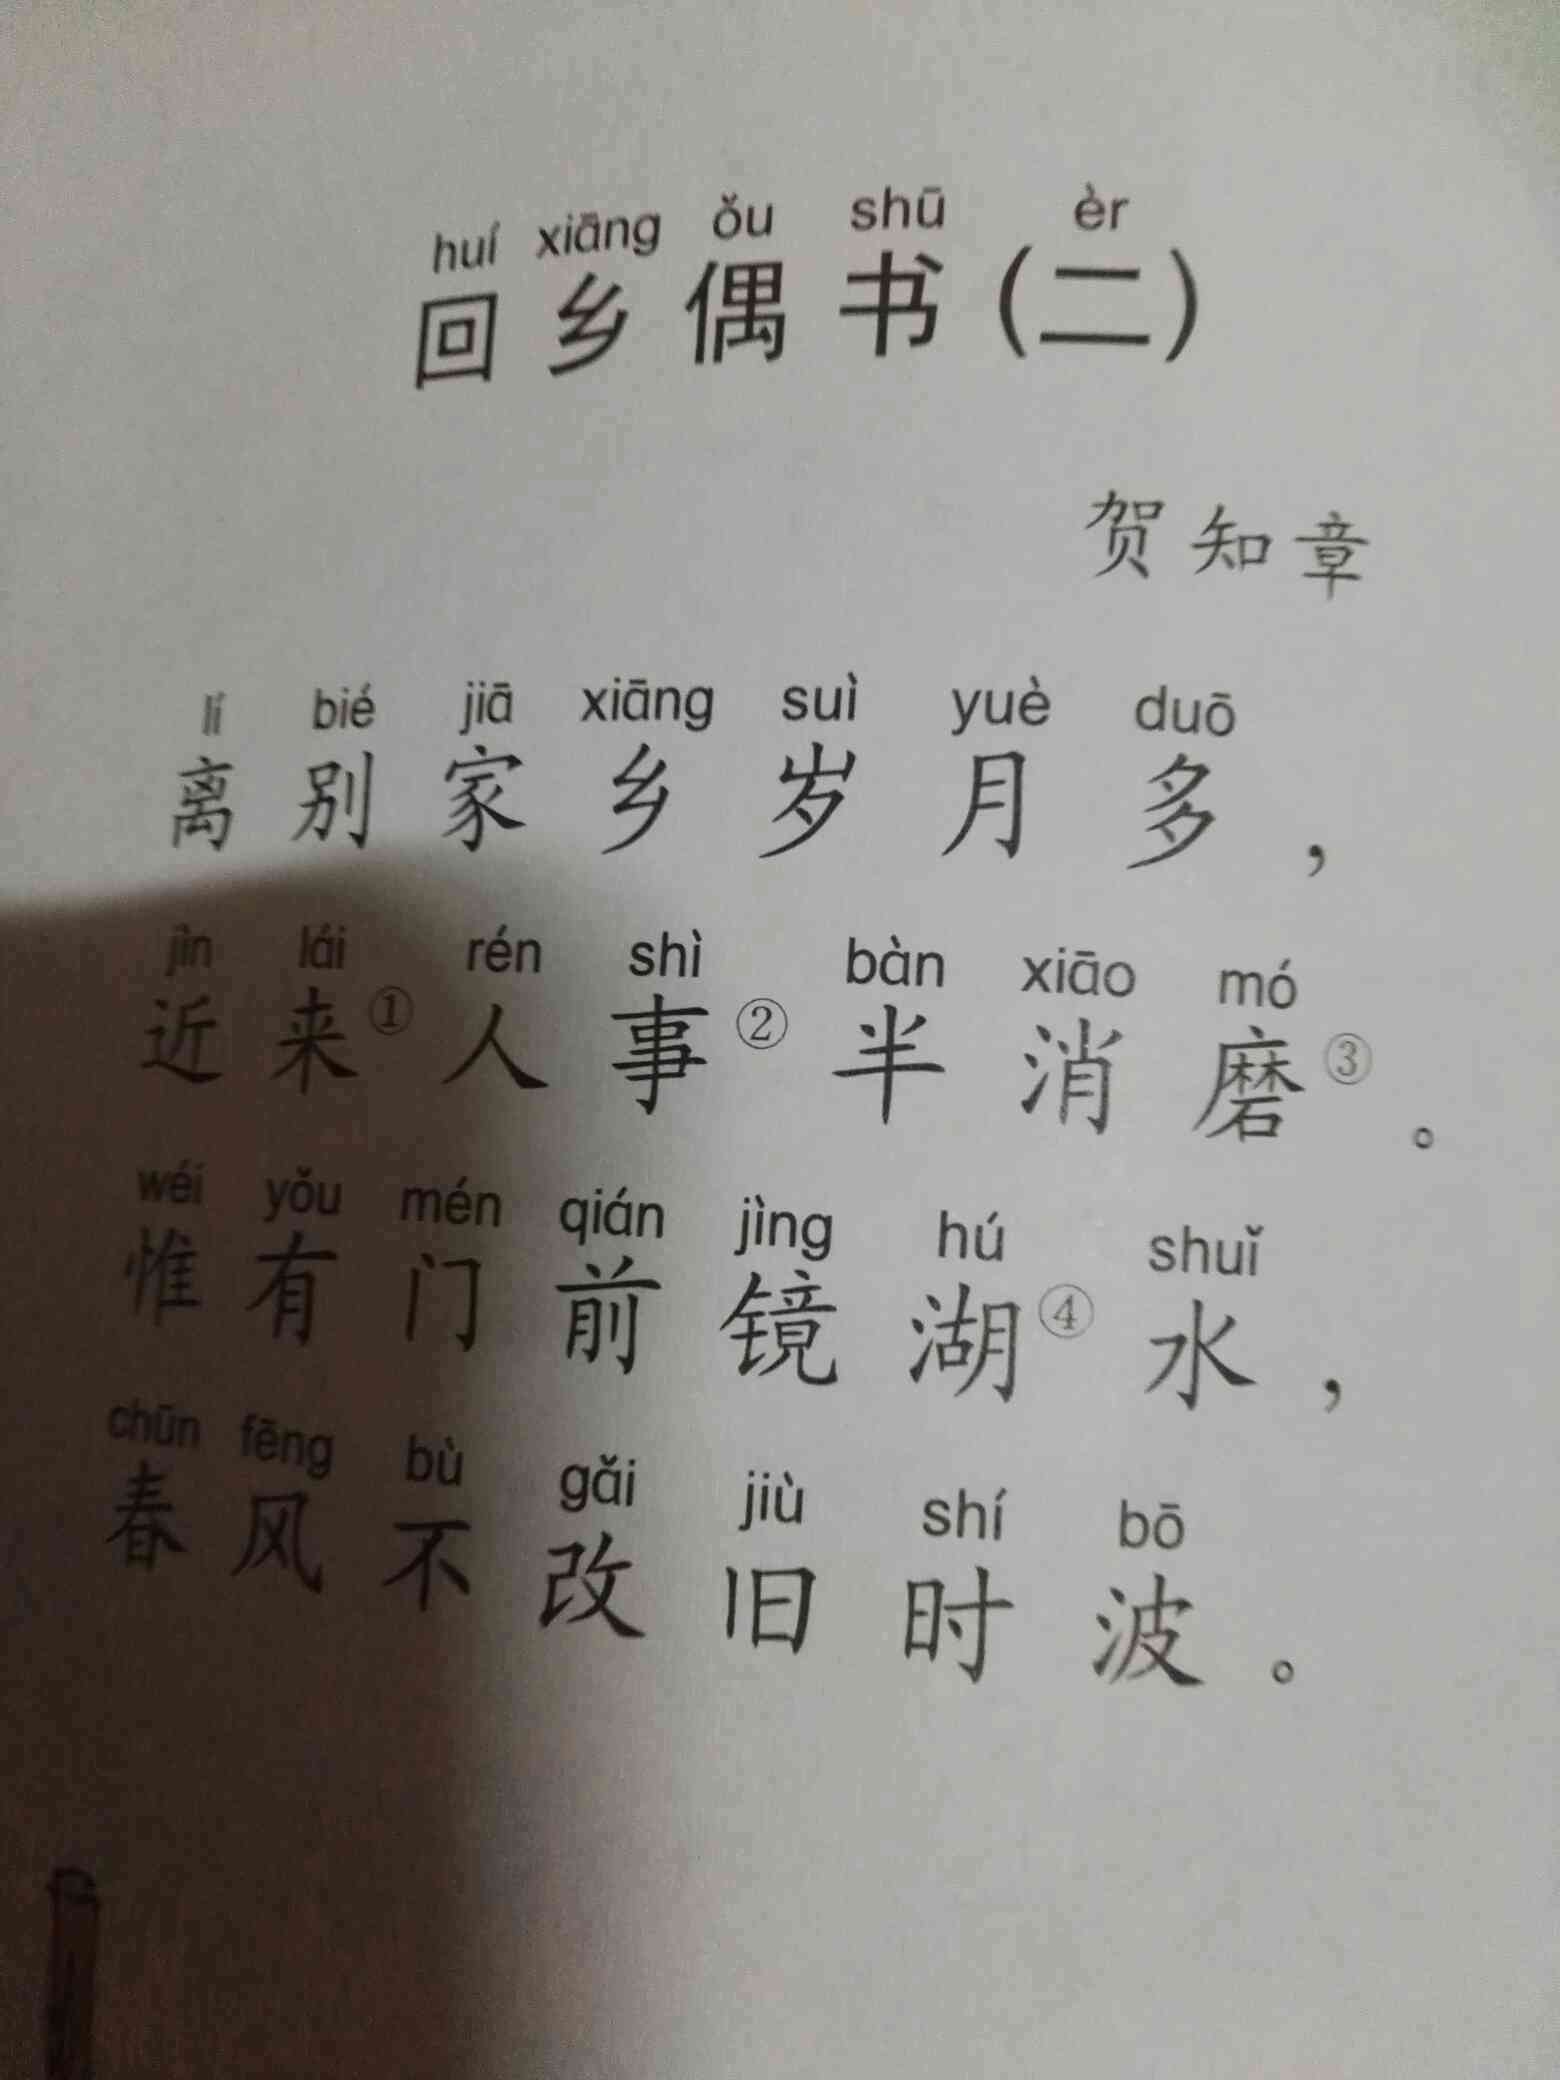 huí xiāng ǒu shū èr
回乡偶书(二)
贺知章
lí bié jiā xiāng suì yuè duō
离别家乡岁月多，
jìn lái rén shì bàn xiāo mó
近来①人事②半消磨③。
wéi yǒu mén qián jìng hú shuǐ
惟有门前镜湖④水，
chūn fēng bù gǎi jiù shí bō
春风不改旧时波。